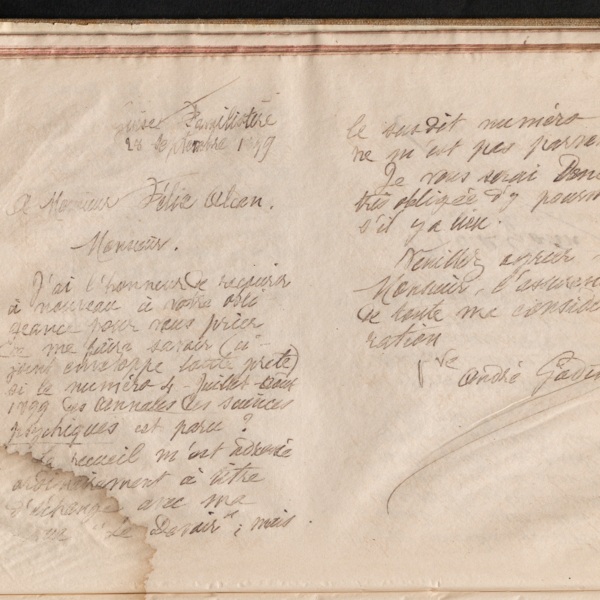 Guise Familistère
28 septembre 1899
A Monsieur Félix Alcan.
Monsieur.
J'ai l'honneur de recourir
à nouveau à votre obli
geance pour vous prier
de me faire savoir (ci-
joint enveloppe toute prête)
si le numéro 4 - Juillet-Août
1899 des Annales des sciences
psychiques est paru ?
Ce recueil m'est adressé
ordinairement à titre
d'échange avec ma
"Le Devoir"; mais
le susdit numéro
ne m'est pas
Je vous serai Donc
très obligée d'y
s'il y a lieu.
Veuillez agréer
Monsieur, l'
de toute ma considé
ration
Vve André